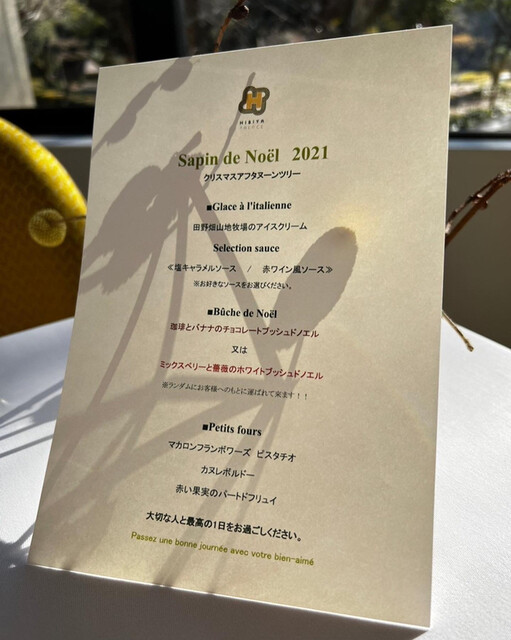 HIBIYA
PALACE
Sapin de Noël 2021
クリスマスアフタヌーンツリー
■Glace à l'italienne
田野畑山地牧場のアイスクリーム
Selection sauce
≪塩キャラメルソース / 赤ワイン風ソース≫
※お好きなソースをお選びください。
■Bûche de Noël
珈琲とバナナのチョコレートブッシュドノエル
又は
ミックスベリーと薔薇のホワイトブッシュドノエル
※ランダムにお客様へのもとに運ばれて来ます！！
■Petits fours
マカロンフランボワーズ ピスタチオ
カヌレボルドー
赤い果実のパートドフリュイ
大切な人と最高の1日をお過ごしください。
Passez une bonne journée avec votre bien-aimé